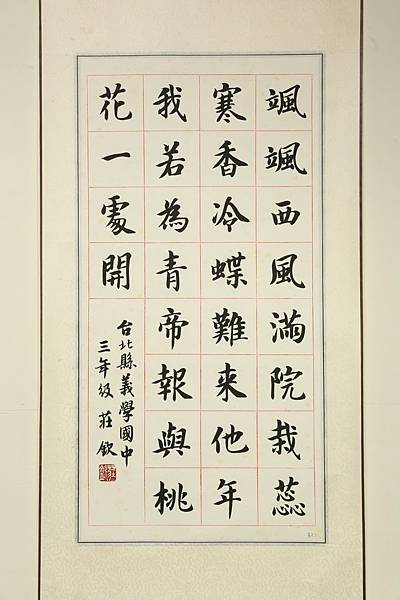 颯颯西風滿院栽蕊
寒香冷蝶難來他年
我若為青帝報與桃
花一處開
台北縣義學國中
三年級莊欽